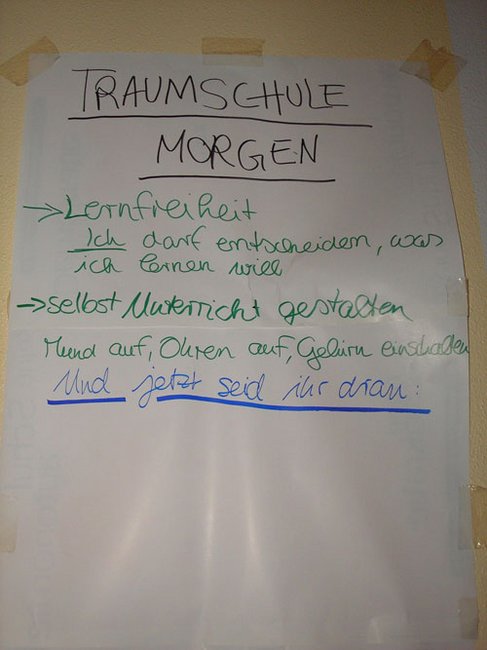 TRAUMSCHULE
MORGEN
→ Lernfreiheit
Ich darf entscheiden, was
ich lernen will
→ selbst Unterricht gestalten
Mund auf, Ohren auf, Gehirn einschalten
Und jetzt seid ihr dran: